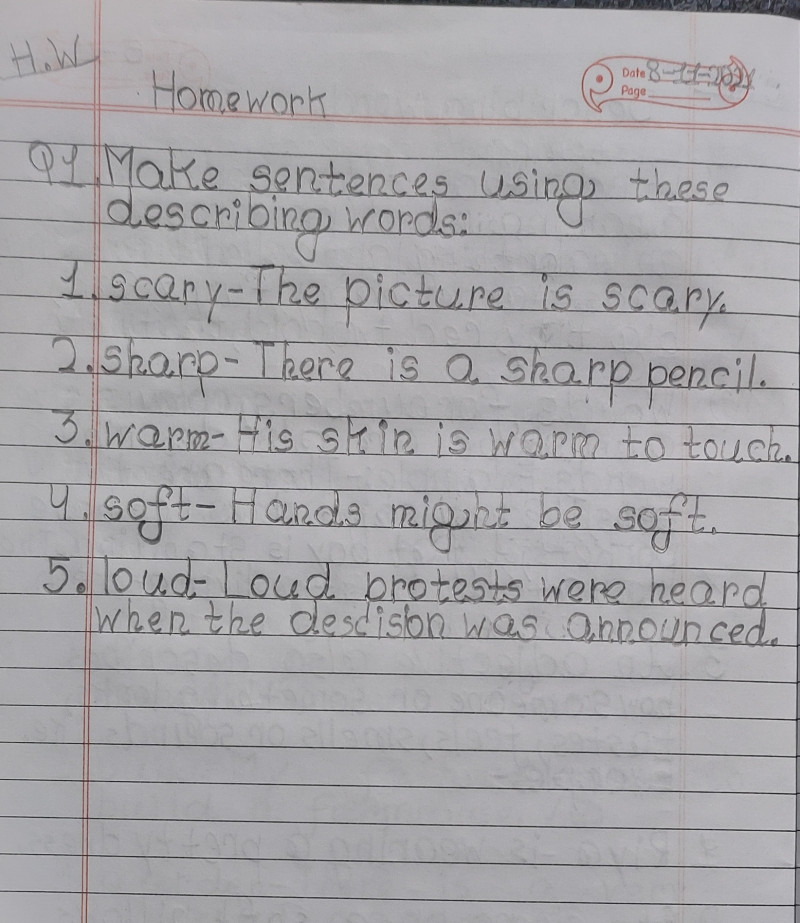 H.W
Date 8-11-2021
Page
Homework
Q1. Make sentences using these
describing words:
1. scary-The picture is scary.
2. sharp- There is a sharp pencil.
3. warm- His skin is warm to touch.
4. soft- Hands might be soft.
5. loud- Loud protests were heard
when the descision was announced.